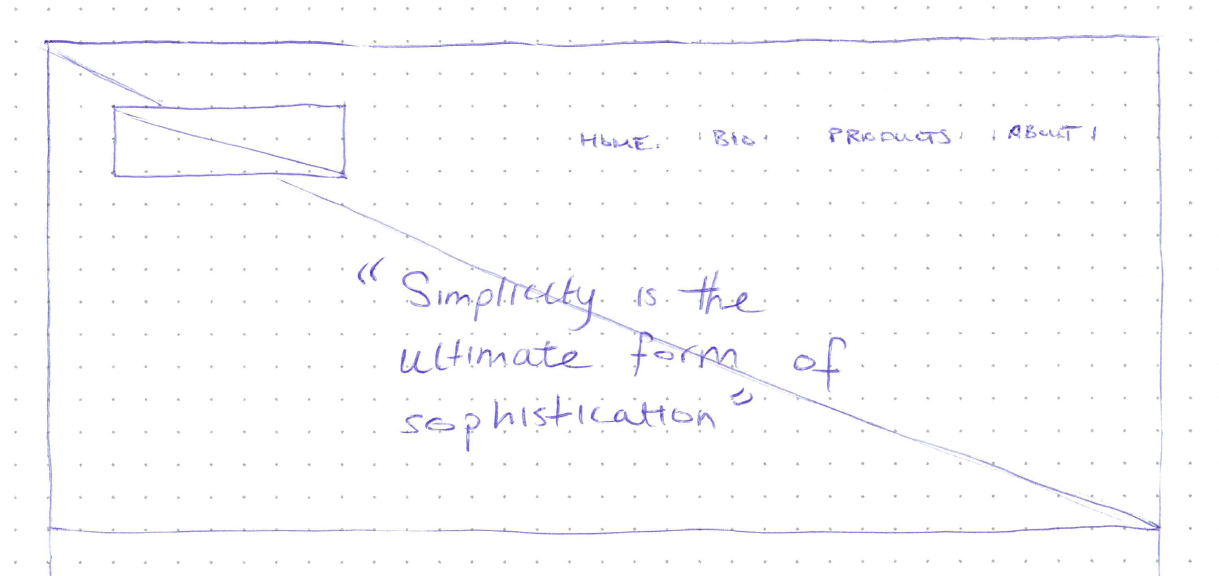 HOME BIO PRODUCTS ABOUT
“Simplicity is the
ultimate form of
sophistication”